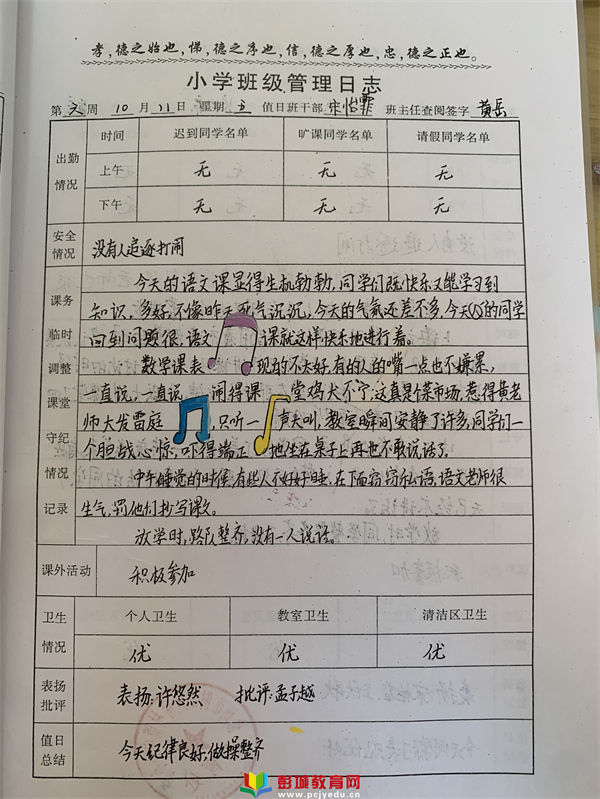 孝,德之始也,悌,德之序也,信,德之厚也,忠,德之正也。
小学班级管理日志
第 六 周 10 月 11 日 星期 五 值日班干部 宋怡霏 班主任查阅签字 黄岳
出勤情况 时间 迟到同学名单 旷课同学名单 请假同学名单
上午 无 无 无
下午 无 无 无
安全情况 没有人追逐打闹
课务 临时 调整 课堂 守纪 情况 记录
今天的语文课显得生机勃勃,同学们既快乐又能学习到
知识,多好,不像昨天死气沉沉,今天的气氛还差不多,今天的同学
回到问题很,语文课就这样快乐地进行着。
数学课表现的不太好,有的人的嘴一点也不嫌累,
一直说,一直说 闹得课堂鸡犬不宁,这真是个菜市场,惹得黄老
师大发雷庭,只听一声大叫,教室瞬间安静了许多,同学们一
个胆战心惊,吓得端正地坐在桌子上再也不敢说话了。
中午睡觉的时候,有些人不好好睡,在下面窃窃私语,语文老师很
生气,罚他们抄写课文。
放学时,路队整齐,没有一人说话。
课外活动 积极参加
卫生情况 个人卫生 教室卫生 清洁区卫生
优 优 优
表扬批评 表扬:许悠然 批评:孟子越
值日总结 今天纪律良好;做操整齐
彭城教育网
www.pcjyedu.cn